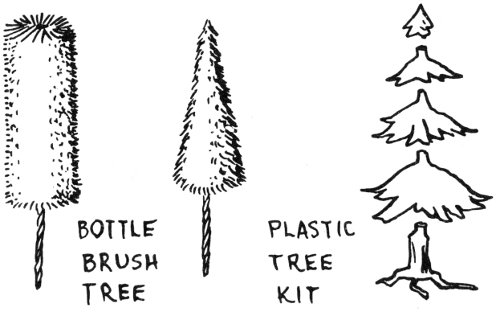 BOTTLE
BRUSH
TREE
PLASTIC
TREE
KIT